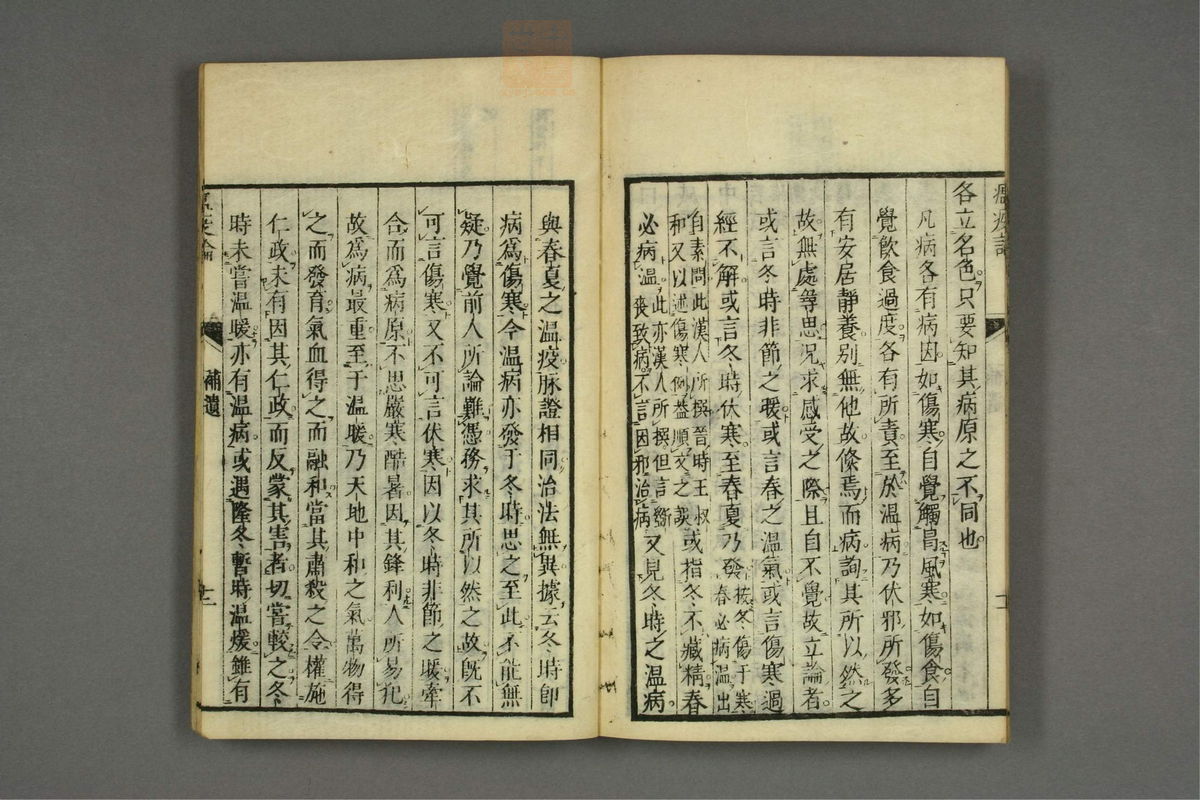 各立名色只要知其病原之不同也
凡病各有病因如傷寒自覺觸冒風寒如傷食自
覺飲食過度各有所責至於温病乃伏邪所發多
有安居靜養别無他故倐焉而病詢其所以然之
故無處尋思况求感受之際且自不覺故立論者
或言冬時非節之暖或言春之温氣或言傷寒過
經不解或言冬時伏寒至春夏乃發按冬傷于寒春必病温出
自素問此漢人所撰晉時王叔和又以述傷寒例葢順文之誤或指冬不藏精春
必病温此亦漢人所撰但言斵喪致病不言因邪治病又見冬時之温病
與春夏之温疫脉證相同治法無異據云冬時即
病為傷寒今温病亦發于冬時思之至此不能無
疑乃覺前人所論難憑務求其所以然之故既不
可言傷寒又不可言伏寒因以冬時非節之暖牽
合而為病原不思嚴寒酷暑因其鋒利人所易犯
故為病最重至于温暖乃天地中和之氣萬物得
之而發育氣血得之而融和當其肅殺之令權施
仁政未有因其仁政而反蒙其害者切嘗較之冬
時未嘗温暖亦有温病或遇隆冬暫時温煖雖有
補遺